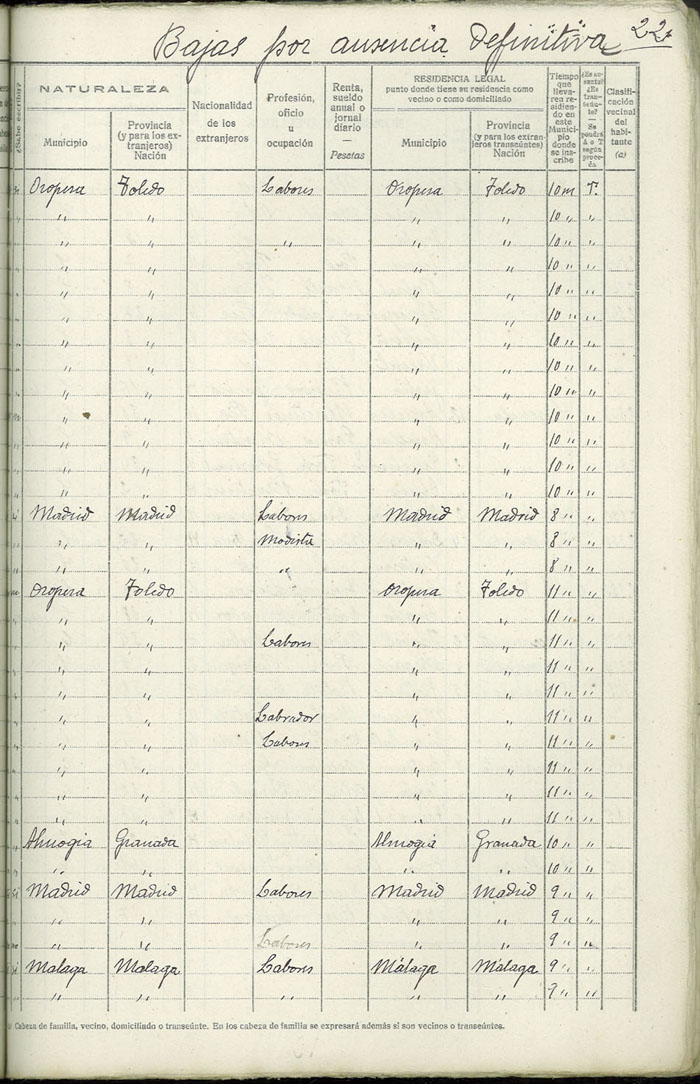 Bajas por ausencia definitiva 22
¿Sabe escribir?
NATURALEZA
Municipio
Provincia (y para los extranjeros) Nación
Nacionalidad de los extranjeros
Profesión, oficio u ocupación
Renta, sueldo anual o jornal diario — Pesetas
RESIDENCIA LEGAL
punto donde tiene su residencia como vecino o como domiciliado
Municipio
Provincia (y para los extranjeros transeúntes) Nación
Tiempo que llevara residiendo en este Municipio donde se inscribe
¿Es ausente? ¿Es transeúnte? — Se pondrá A o T según proceda
Clasificación vecinal del habitante (a)
Oropesa Toledo Labores Oropesa Toledo 10 m T.
" " " " 10 " "
" " " " " 10 " "
" " " " 10 " "
" " " " 10 " "
" " " " 10 " "
" " " " 10 " "
" " " " 10 " "
" " " " 10 " "
" " " " 10 " "
" " " " 10 " "
" " " " 10 " "
" " " " 10 " "
Madrid Madrid Labores Madrid Madrid 8 " "
" " Modista " " 8 " "
" " " " " 8 " "
Oropesa Toledo Oropesa Toledo 11 " "
" " " " 11 " "
" " Labores " " 11 " "
" " " " 11 " "
" " " " 11 " "
" " Labrador " " 11 " "
" " Labores " " 11 " "
" " " " 11 " "
" " " " 11 " "
" " " " 11 " "
Almogia Granada Almogia Granada 10 " "
" " " " 10 " "
Madrid Madrid Labores Madrid Madrid 9 " "
" " " " 9 " "
" " Labores " " 9 " "
Malaga Malaga Labores Málaga Málaga 9 " "
" " " " " 9 " "
Cabeza de familia, vecino, domiciliado o transeúnte. En los cabeza de familia se expresará además si son vecinos o transeúntes.